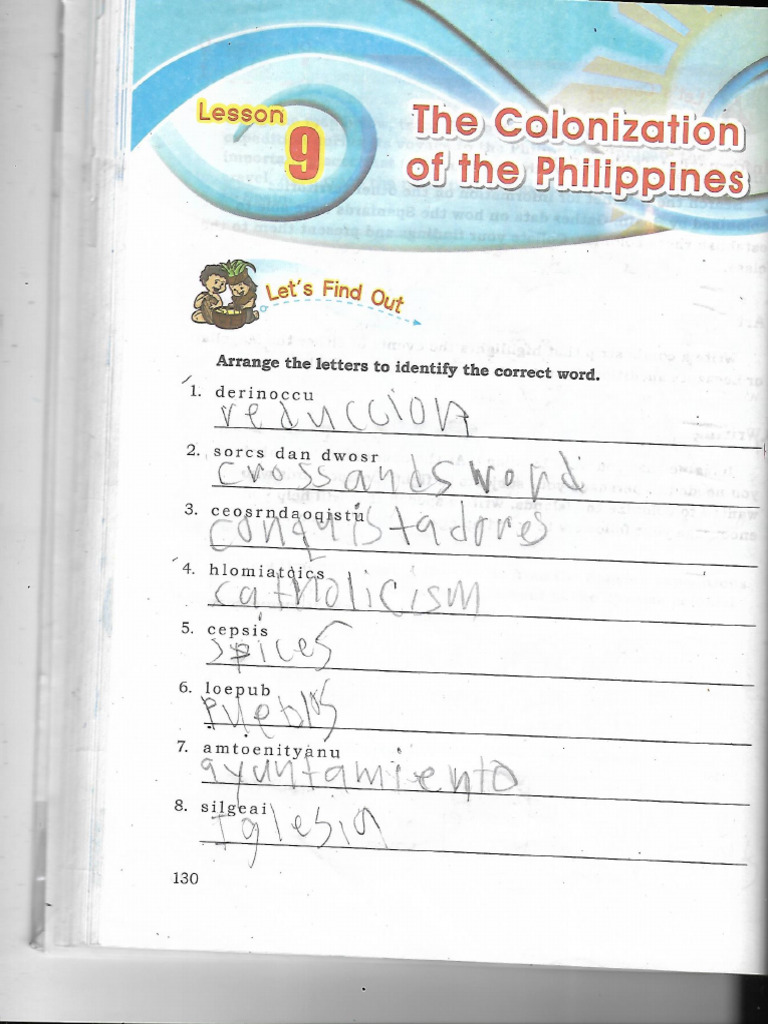 Lesson
9
The Colonization
of the Philippines
Let's Find Out
Arrange the letters to identify the correct word.
1. derinoccu
reduccion
2. sorcs dan dwosr
cross and sword
3. ceosrndaoqistu
conquistadores
4. hlomiatcics
catholicism
5. cepsis
spices
6. loepub
pueblos
7. amtoenityanu
ayuntamiento
8. silgeai
Iglesia
130